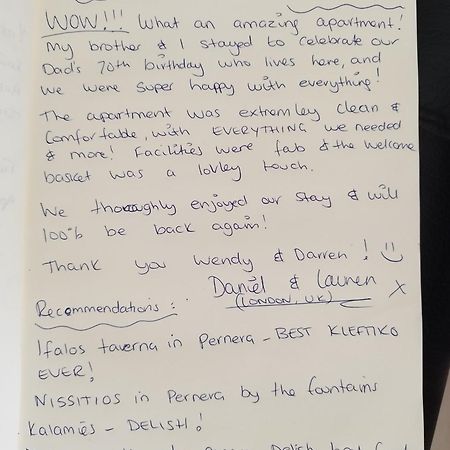 WOW!!! What an amazing apartment!
My brother & I stayed to celebrate our
Dad's 70th birthday who lives here, and
we were super happy with everything!
The apartment was extremley clean &
comfortable, with EVERYTHING we needed
& more! Facilities were fab & the welcome
basket was a lovley touch.
We thoroughly enjoyed our stay & will
100% be back again!
Thank you Wendy & Darren! :)
Daniel & Lauren
(LONDON, UK) X
Recommendations:
Ifalos taverna in Pernera - BEST KLEFTIKO
EVER!
NISSITIOS in Pernera by the fountains
Kalamies - DELISH!